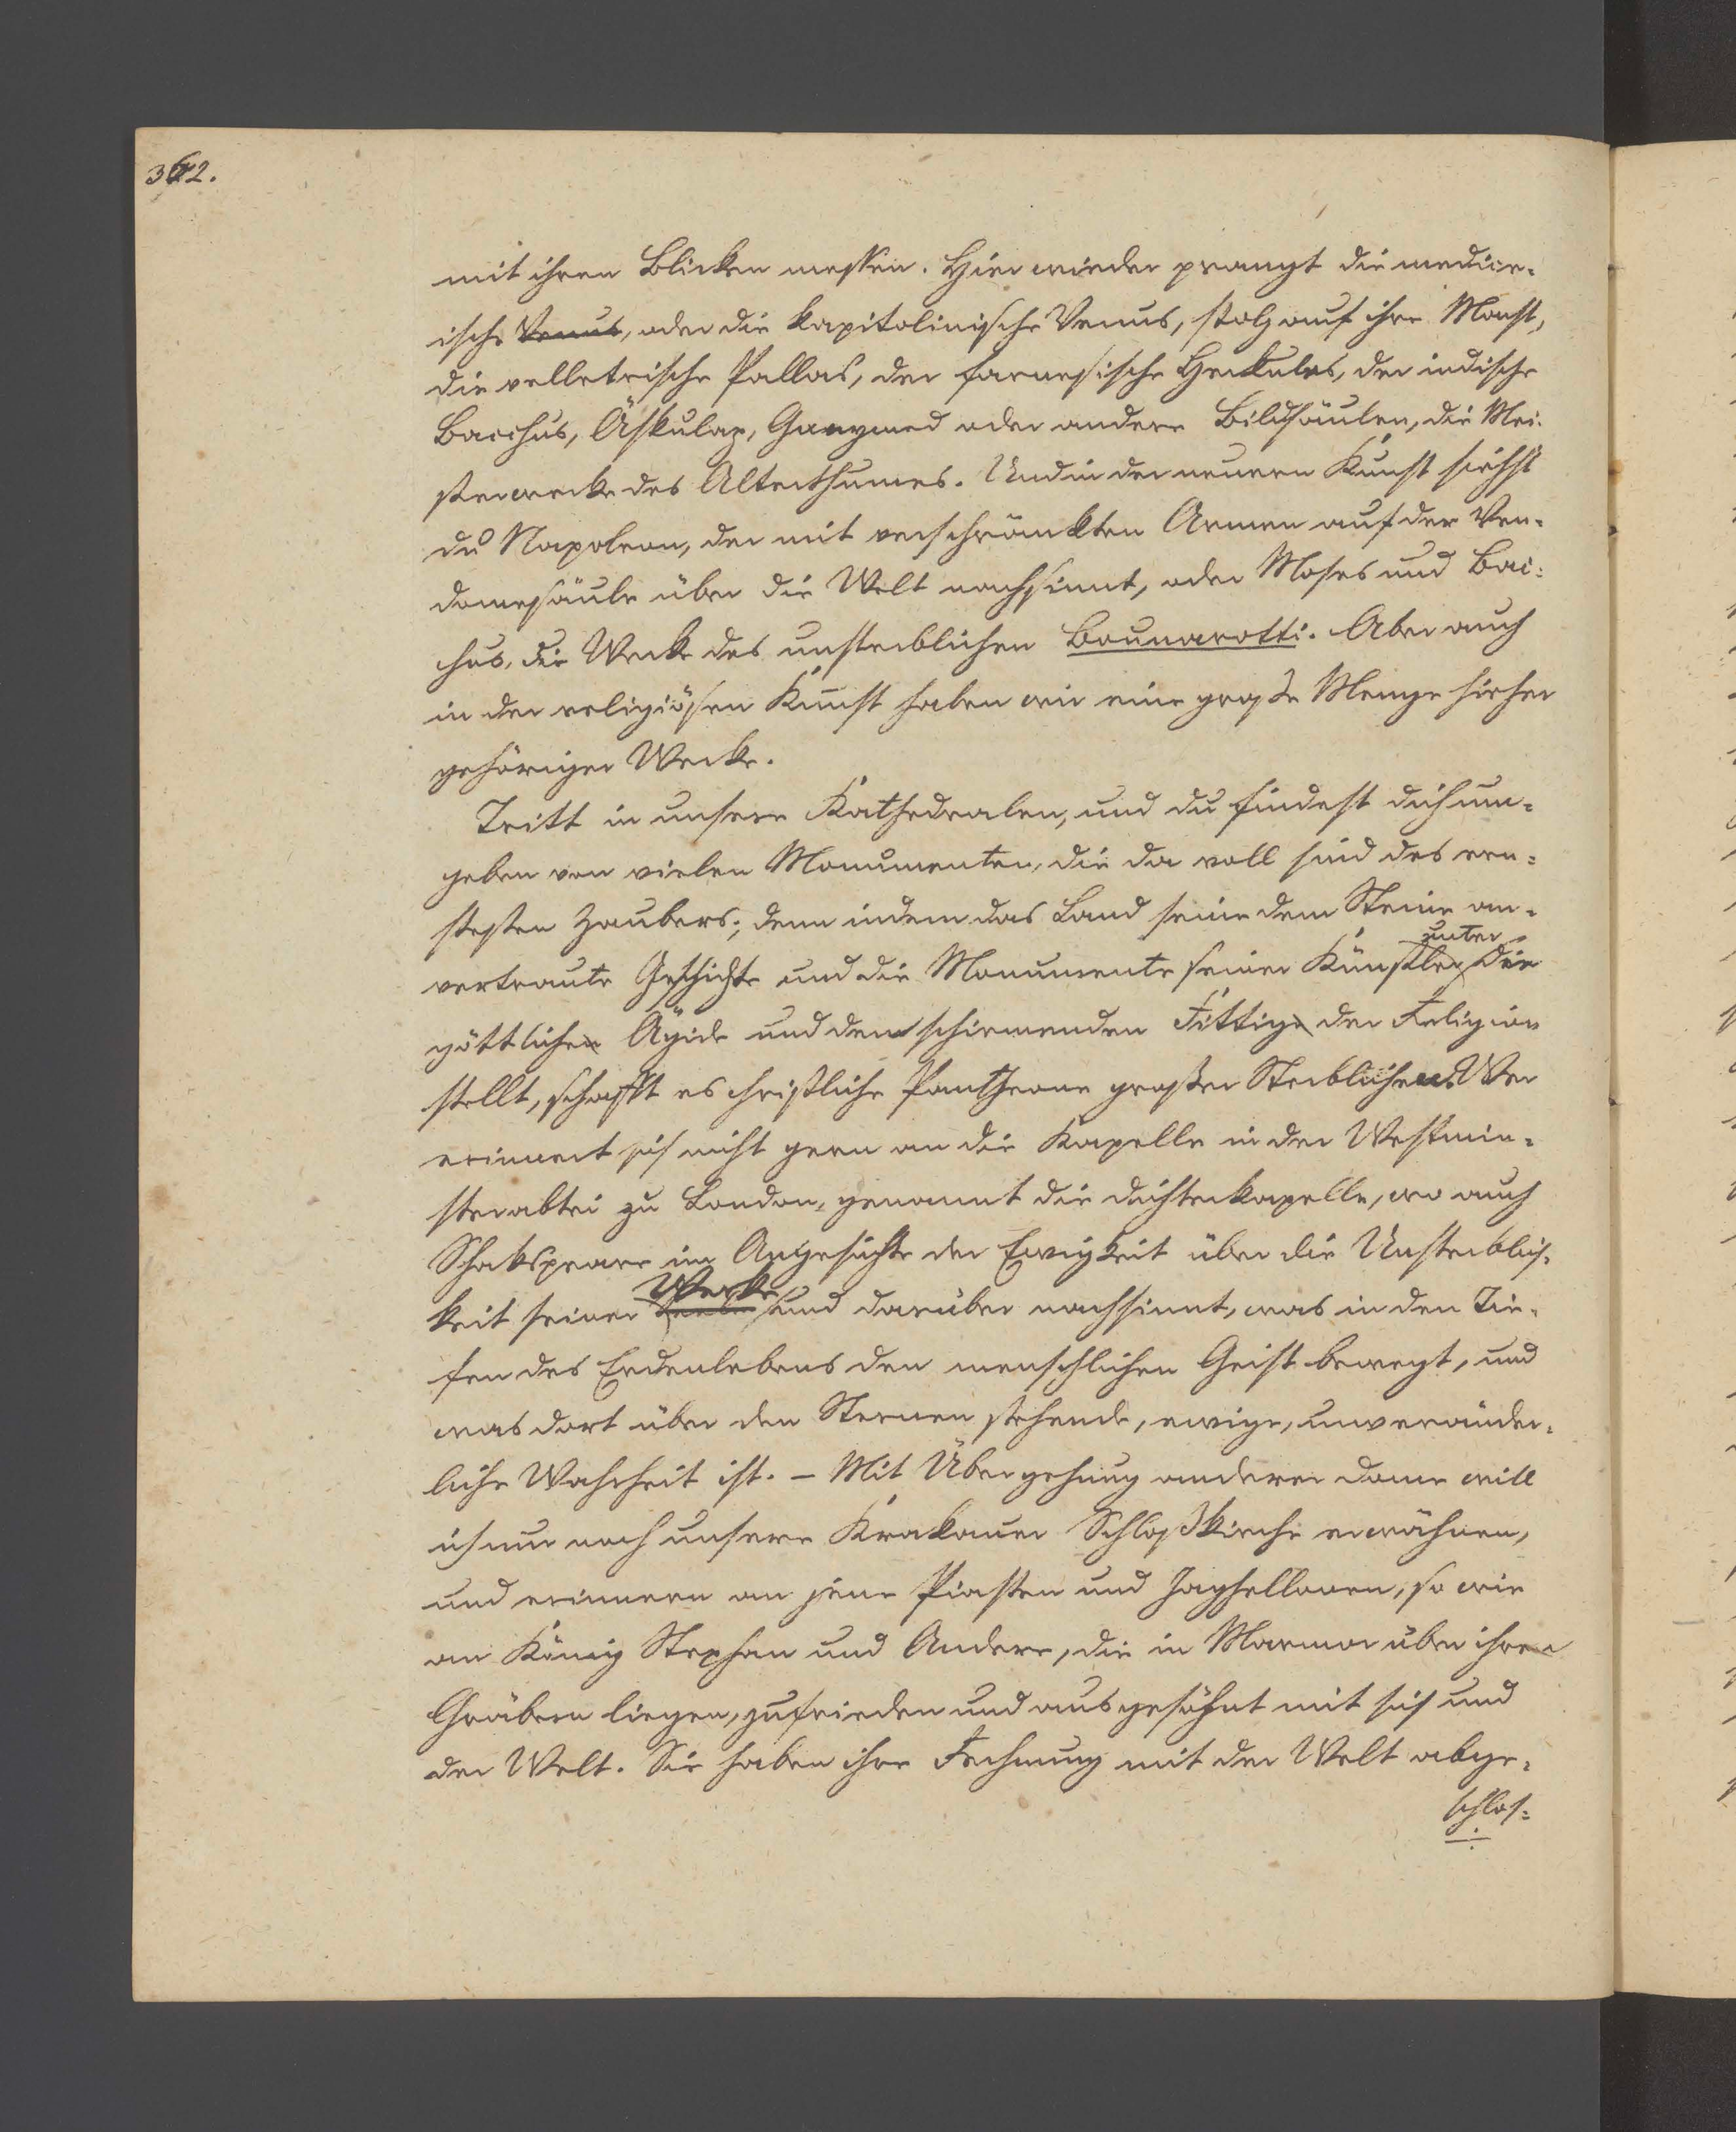 362.
mit ihren Blicken messen. Hier wieder prangt die medice-
ische Venus, oder die kapitolinische Venus, stolz auf ihre Macht,
die velletrische Pallas, der farnesische Herkules, der indische
Bacchus, Äskulap, Ganymed oder andere Bildsäulen, die Mei-
sterwerke des Alterthumes. Und in der neuern Kunst siehst
du Napoleon, der mit verschränkten Armen auf der Ven-
domesäule über die Welt nachsinnt, oder Moses und Bac-
chus, die Werke des unsterblichen Bounarotti. Aber auch
in der religiösen Kunst haben wir eine große Menge hieher
gehöriger Werke.
Tritt in unsere Kathedralen, und du findest dich um-
geben von vielen Monumenten, die da voll sind des ern-
stesten Zaubers; denn indem das Land seine dem Steine an-
unter
vertraute Geschichte und die Monumente seiner Künstler die
göttliche Ägide und den schirmenden Fittig der Religion
stellt, schafft es christliche Pantheone großer Sterblicher. Wer
erinnert sich nicht gern an die Kapelle in der Westmin-
sterabtei zu London, genannt die Dichterkapelle, wo auch
Shakspeare im Angesichte der Ewigkeit über die Unsterblich-
Werke
keit seiner und darüber nachsinnt, was in den Tie-
fen des Erdenlebens den menschlichen Geist bewegt, und
was dort über den Sternen stehende, ewige, unveränder-
liche Wahrheit ist. – Mit Übergehung anderer Dome will
ich nur noch unsere Krakauer Schloßkirche erwähnen,
und erinnern an jene Piasten und Jaghellonen, so wie
an König Stephan und Andere, die in Marmor über ihren
Gräbern liegen, zufrieden und ausgesöhnt mit sich und
der Welt. Sie haben ihre Rechnung mit der Welt abge-
schlos-